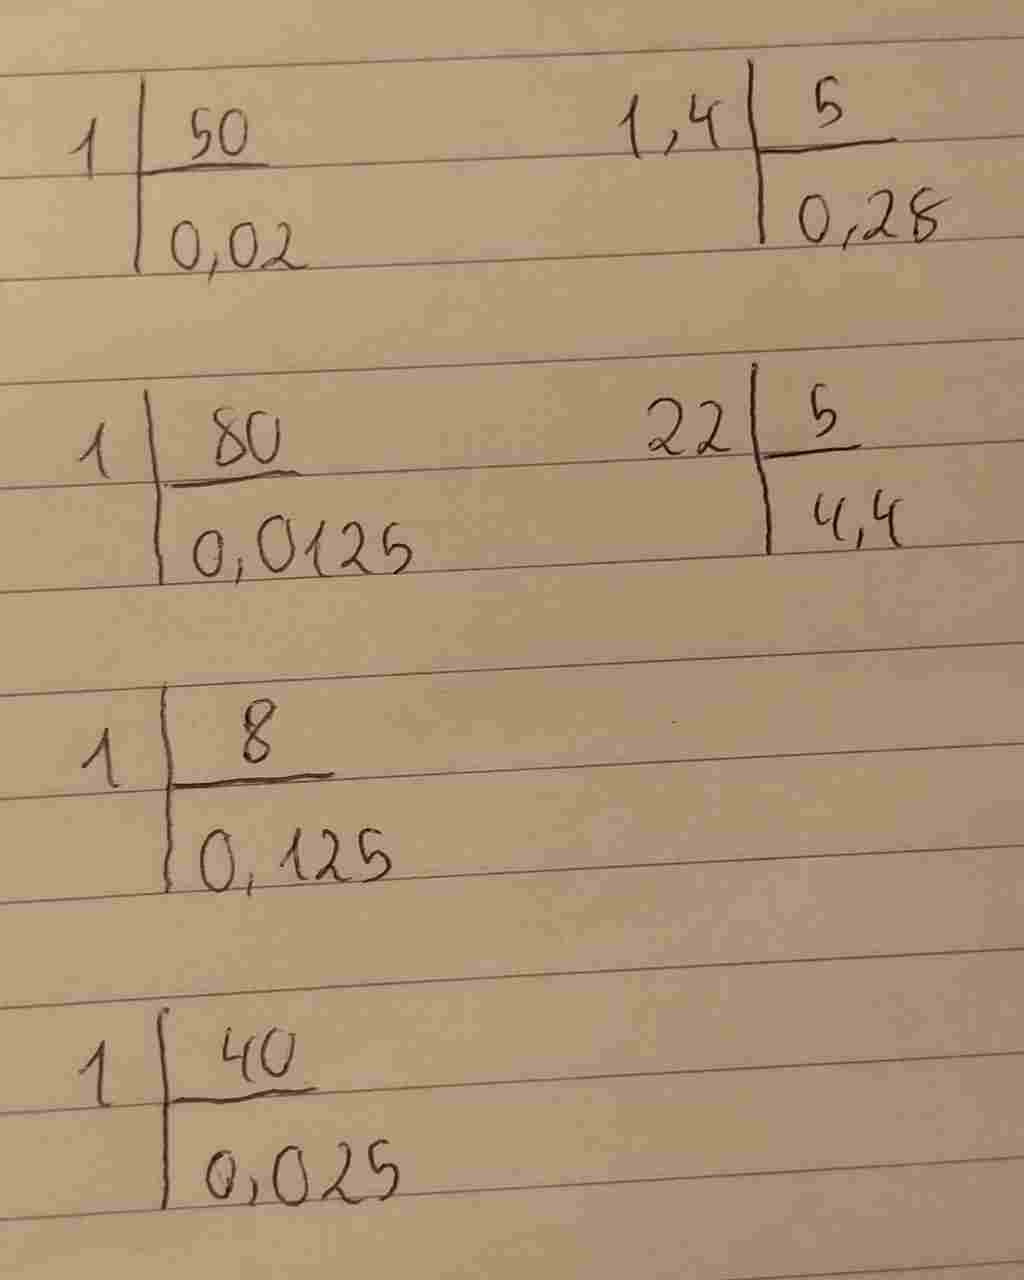 1 50
0,02
1,4 5
0,28
1 80
0,0125
22 5
4,4
1 8
0,125
1 40
0,025